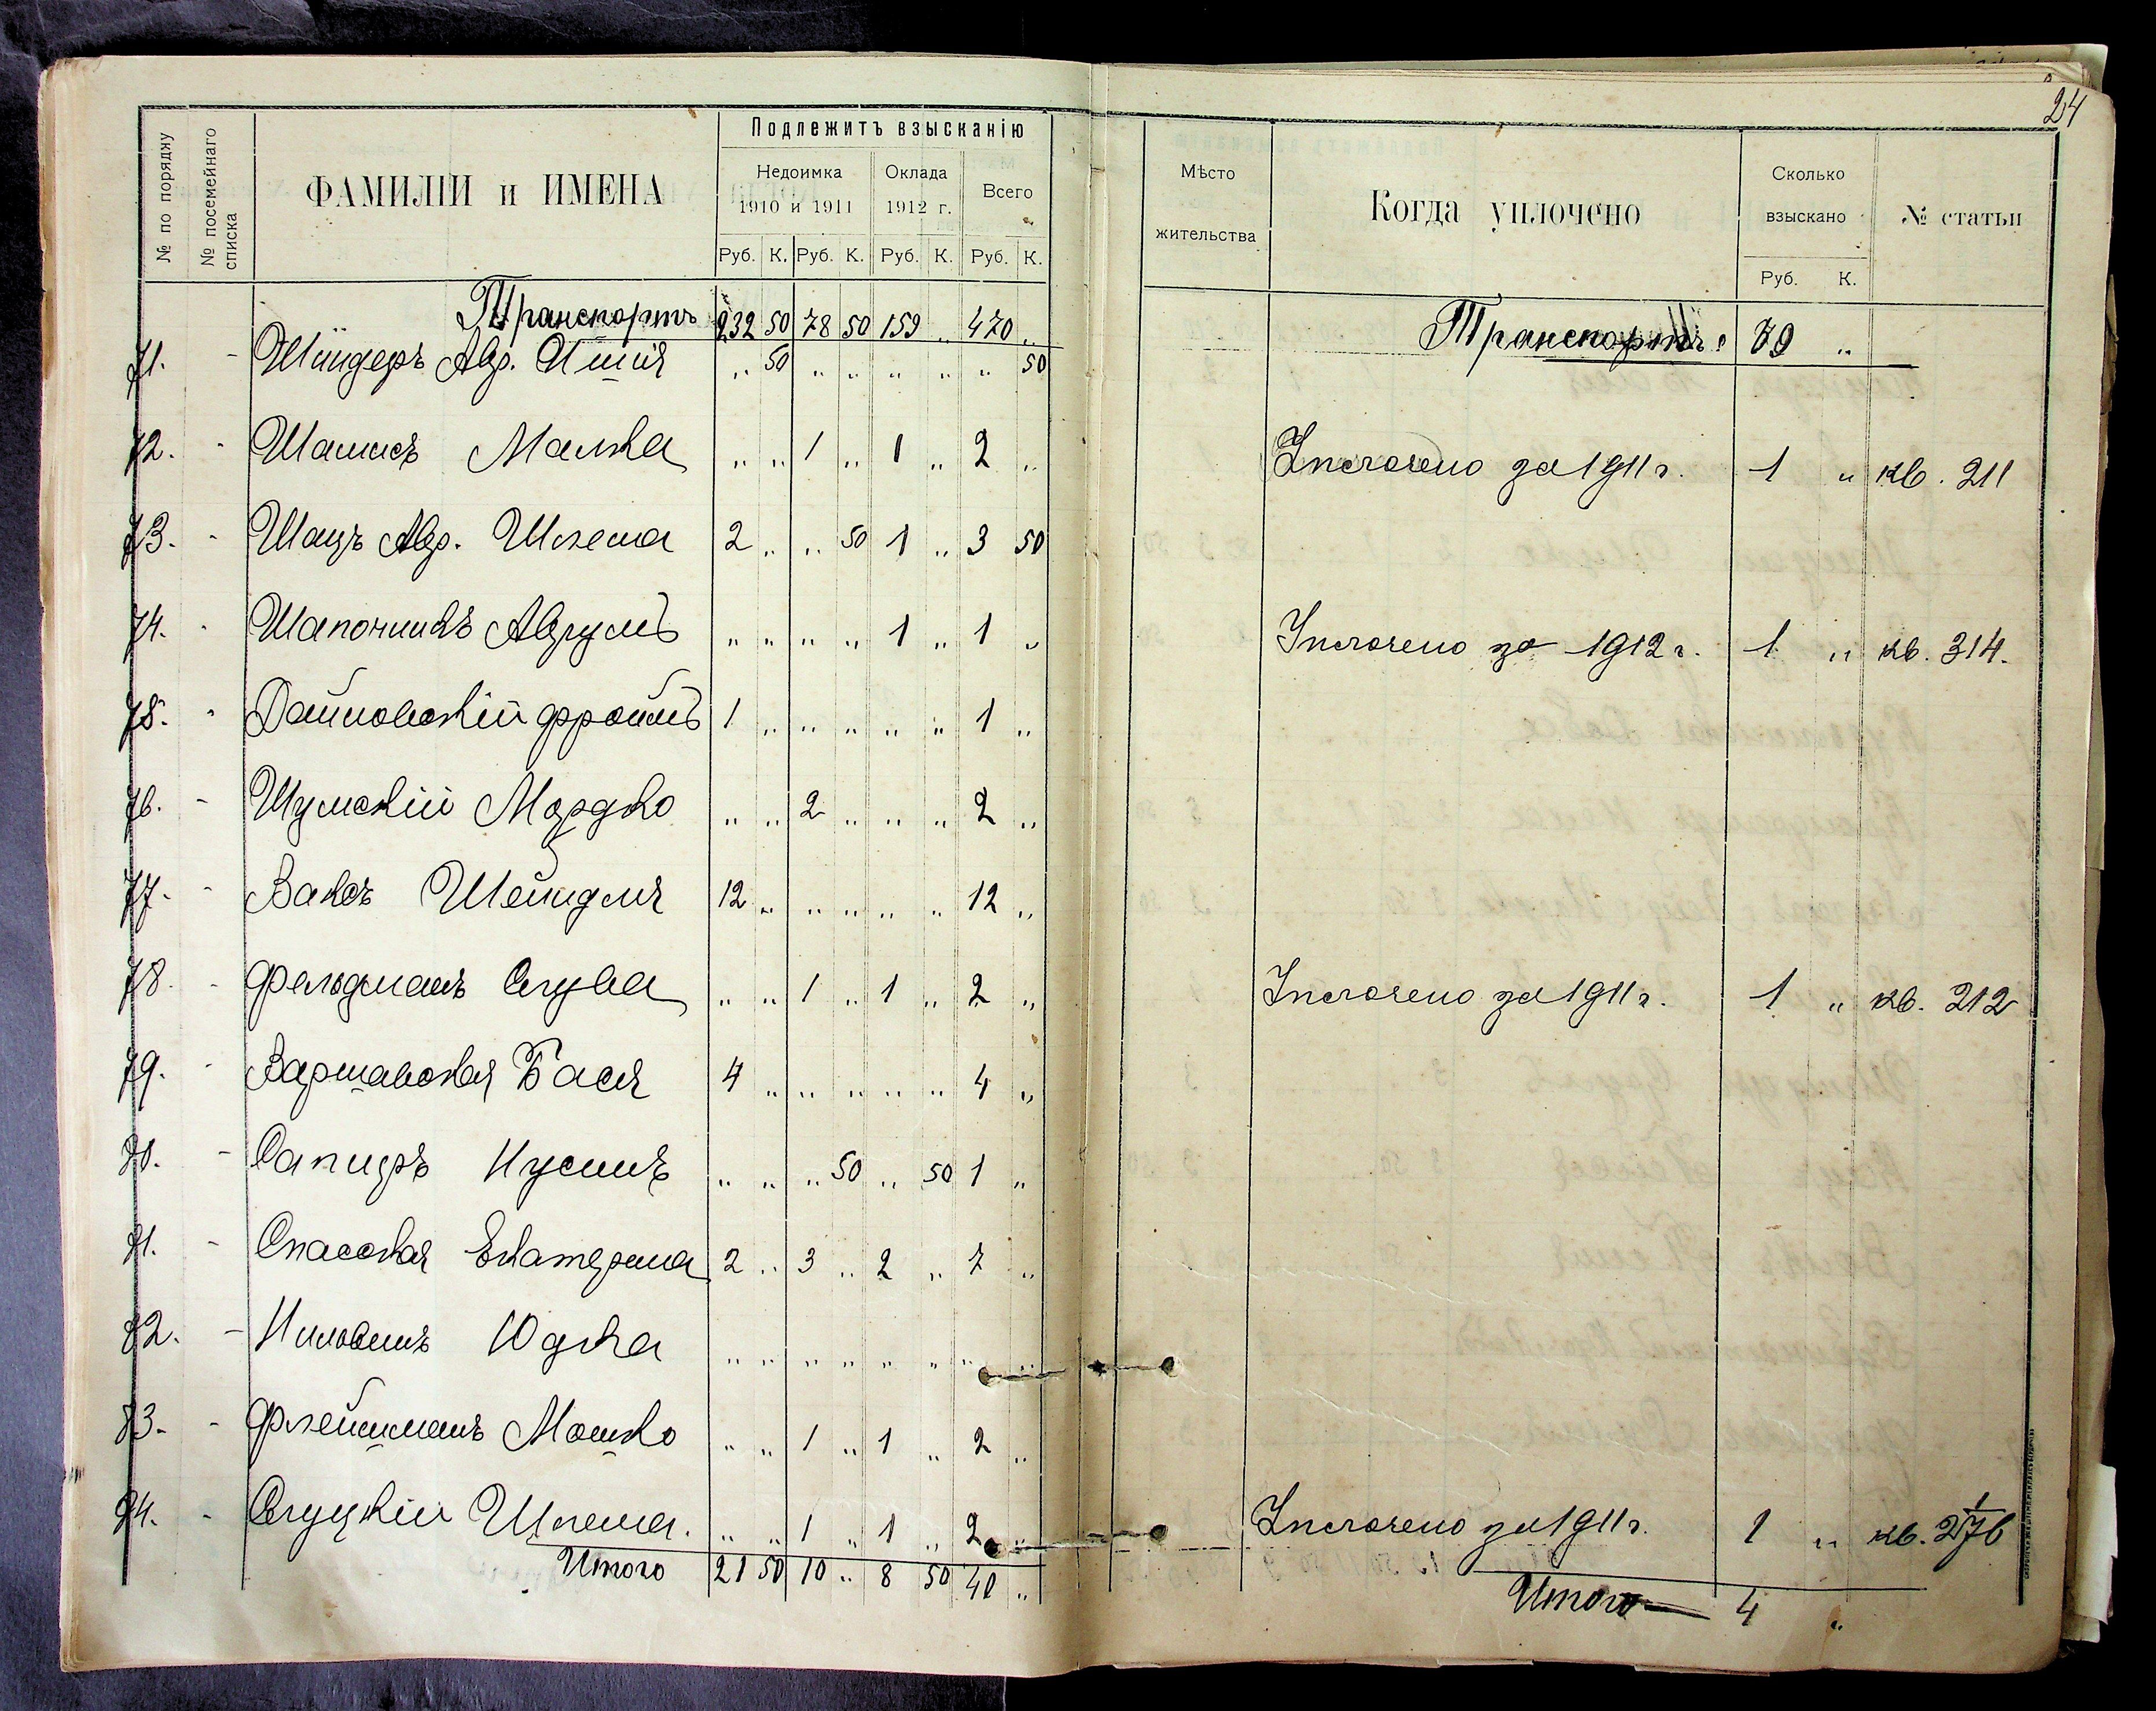 24
№ по порядку
№ посемейнаго списка
ФАМИЛІИ и ИМЕНА
Подлежитъ взысканію
Недоимка 1910 и 1911
Оклада 1912 г.
Всего
Руб. К. Руб. К. Руб. К. Руб. К.
Мѣсто жительства
Когда уплочено
Сколько взыскано
Руб. К.
№ статьи
Транспортъ 232 50 78 50 159 „ 470 „ Транспортъ: 79 „
71. - Шнидеръ Авр. Ишія „ 50 „ „ „ „ „ 50
72. - Малка „ „ 1 „ 1 „ 2 „ Уплочено за 1911 г. 1 „ кв. 211
73. - Шацъ Авр. Шлема 2 „ „ 50 1 „ 3 50
74. - Шапочникъ Аврумъ „ „ „ „ 1 „ 1 „ Уплочено за 1912 г. 1 „ кв. 314.
75. - Дашковскій Фроимъ 1 „ „ „ „ „ 1 „
76. - Шумскій Мордко „ „ 2 „ „ „ 2 „
77. - Ваксъ Шейндля 12 „ „ „ „ „ 12 „
78. - Фельдманъ Слува „ „ 1 „ 1 „ 2 „ Уплочено за 1911 г. 1 „ кв. 212
79. - Варшавская Бася 4 „ „ „ „ „ 4 „
80. - Сапиръ Нусинъ „ „ „ 50 „ 50 1 „
81. - Спасская Екатерина 2 „ 3 „ 2 „ 7 „
82. - Юдка „ „ „ „ „ „ „ „
83. - Флейшманъ Мошко „ „ 1 „ 1 „ 2 „
84. - Слуцкій Шлема. „ „ 1 „ 1 „ 2 „ Уплочено за 1911 г. 1 „ кв. 276
Итого 21 50 10 „ 8 50 40 „ Итого 4 „